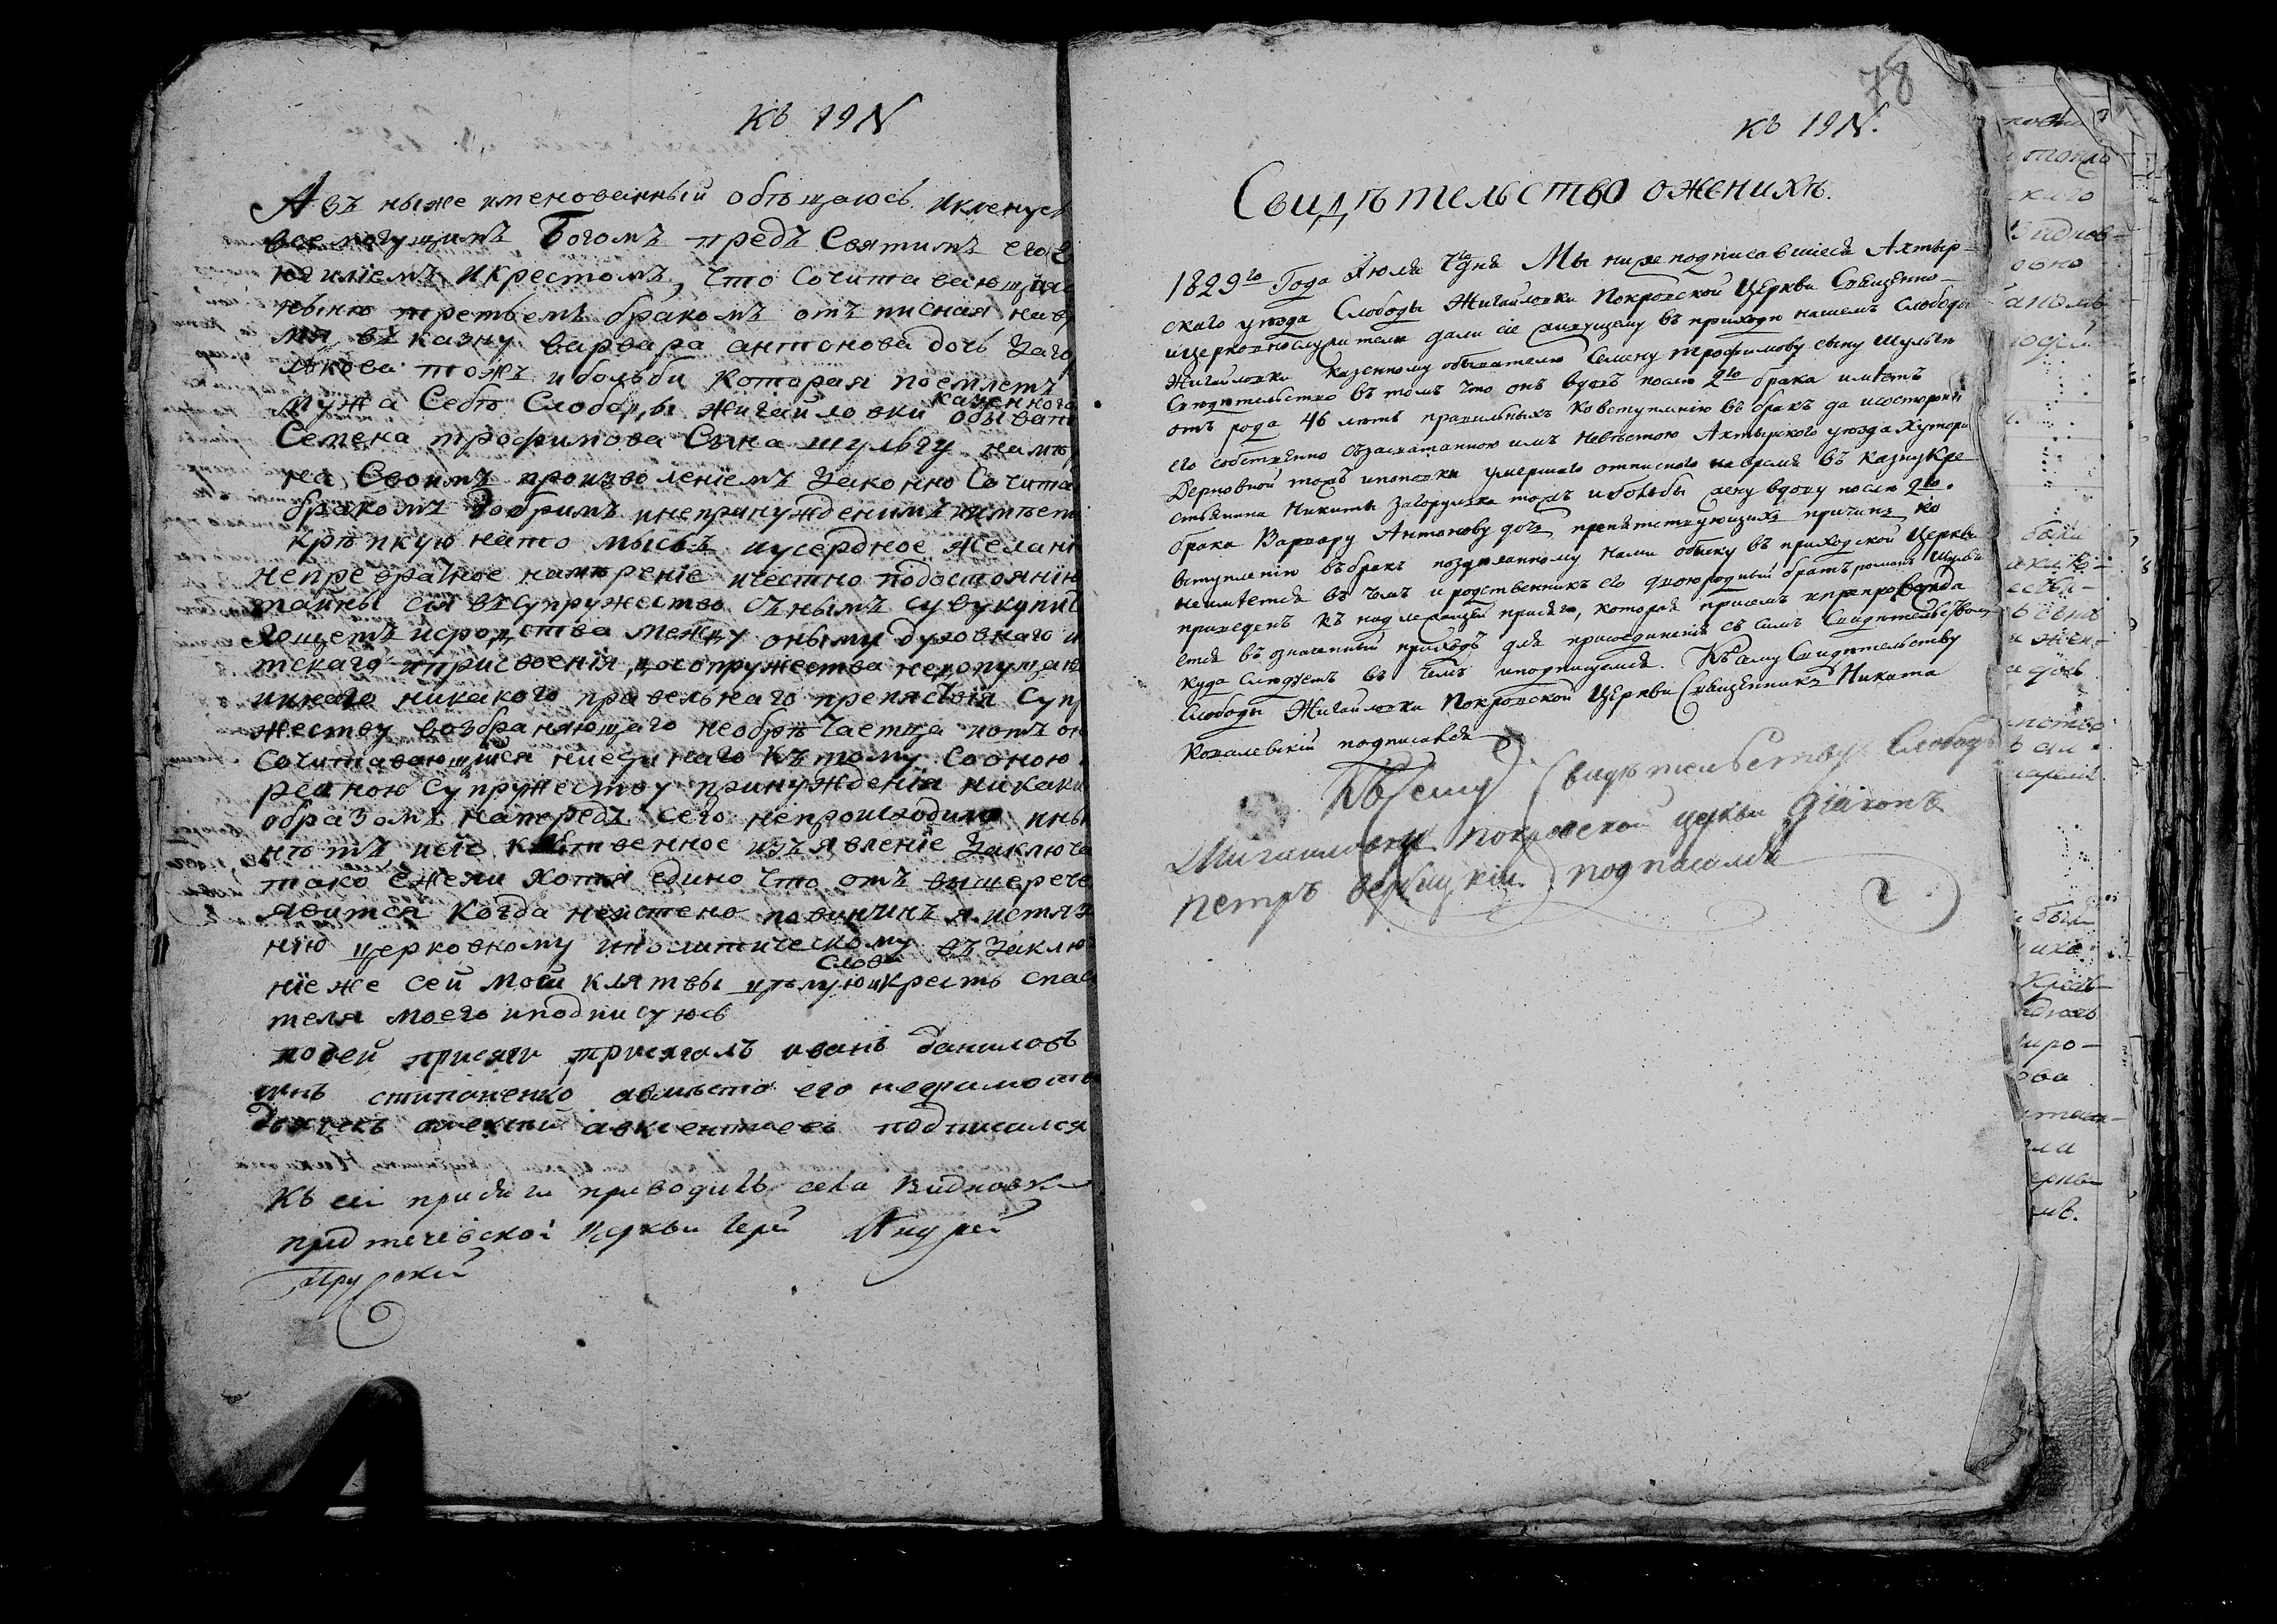 Къ 19 N
Азъ ныже именованный обѣщаюсь икленус
всемогущимъ Богомъ предъ Святимъ его
нгилiемъ икрестомъ, что Сочитавающияс
ныню третьемъ бракомъ отъ писная навр
мя въ казну варвара антонова дочь Заго
лкова тожъ иболь би которая поемлетъ
казенного
мужа Себѣ Слободы жигайловки обывате
Семена трофимова Сына шульгу намѣ
на Своимъ произволенiемъ Законно Сочита
бракомъ добримъ инепринужденимъ имѣет
крѣпкую нато мысль иусердное желанi
непредратное намѣренiе ичестно подостоянiю
тайны сея въ супружество съ нымъ сувукупит
хощетъ исродства между оными духовнаго и
тскаго иприсвоенiя досопружества недопущаю
инаго никакого правельнаго препяствiя Суп
жеству возбраняющаго необрѣтаетца потъ он
Сочитавающияся ниединаго Кътому Сооною
рев ною супружеству принужденiя никаки
образомъ напередъ сего непроисходило ины
нѣтъ исiе клятвенное изъявленiе Заключа
тако ежели хотя едино что отъ вышерече
явится когда неистено повиненъ я истяз
нiю церковному иполитическому въ Заклю
слова
нiе же сей моей клятвы цѣлую икрестъ спас
теля моего иподписуюсь
посей присяги присягалъ иванъ даниловъ
сынъ степаненко авмѣсто его неграмотн
дьячекъ алексѣй авксентиевъ подписался
Къ сей присяги приводилъ села Видновки
предтечевской Церкви Iерей Андрей
78
Къ 19 N.
Свидѣтельство оженихѣ.
1829го Года Iюля 7го дня Мы нижеподписавшiеся Ахтыр-
скаго уѣзда Слободы Жигайловки Покровской Церкви Священно-
ицерковнослужители дали сiе живущему въ приходѣ нашемъ Слободы
Жигайловки казенному обывателю Семену трофимову сыну Шульги
Свидетельство въ томъ что онъ вдовъ послѣ 2го брака имѣетъ
отъ рода 46 лѣтъ правильныхъ ко вступленiю въ бракъ да исосторонй
его собственно съзасватанною имъ невѣстою Ахтырского уѣзда Хутора
Дерновой тожъ ипоповки умершаго отписного на время въ казну Кре-
стьянина Никиты Загорулька тожъ иболъбы жену вдову послѣ 2го
брака Варвару Антонову дочь препятствующихъ причинъ ко
вступленiю въ бракъ поздѣланному нами обыску въ приходской Церкви
неимѣется въ чемъ и родственникъ его двоюродный братъ романъ Шульга
приведенъ къ надлежащей присягѣ, которая присемъ ипрепровожда
ется въ означенный приходъ для присоединенiя съ симъ Свидѣтельствомъ
куда слѣдуетъ въ чемъ иподписуемся. Къ сему Свидетельству
Слободы Жигайловки Покровской Церкви Священникъ Никита
Ковалевскiй подписался
Къ Сему Свидѣтельству Слободы
Жигайловки покровской церкви дiаконъ
петръ вербицкiй подписался